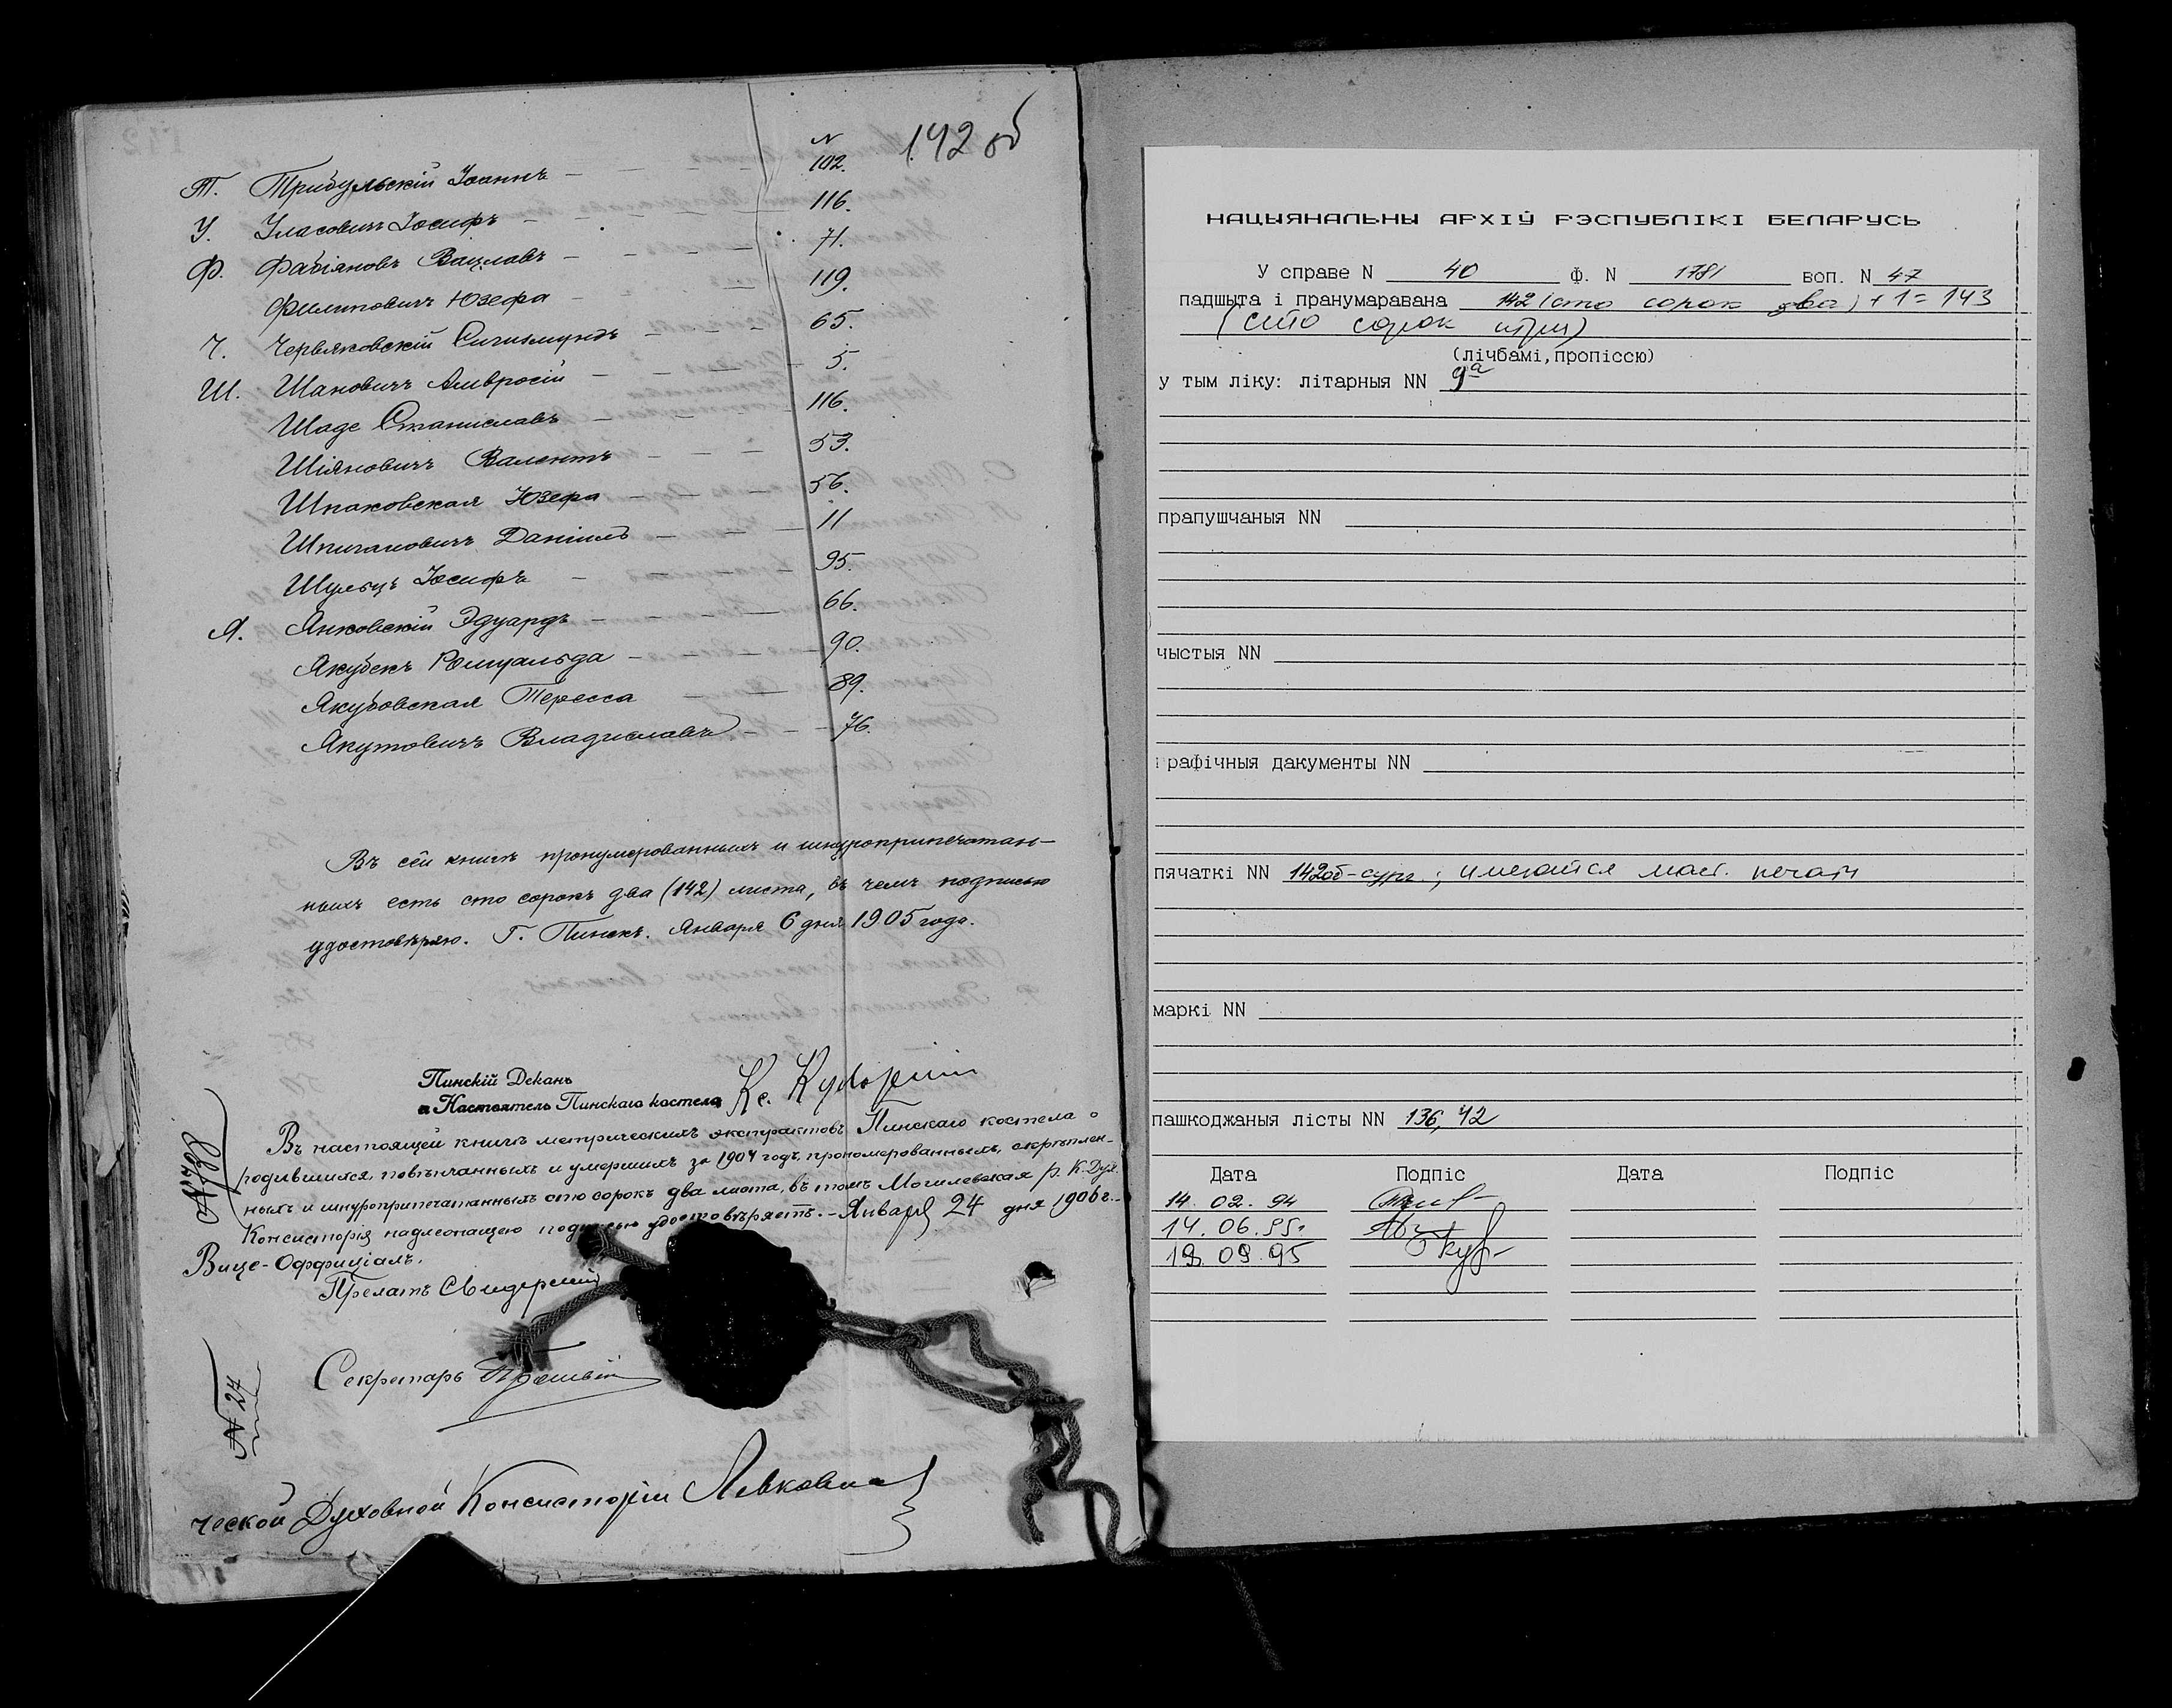 142 об
N
Т. Трибульскій Іоаннъ - - - - 102.
У. Уласовичъ Іосифъ - - - - 116.
Ф. Фабіяновъ Вацлавъ - - - - 71.
Филиповичъ Юзефа - - - 119.
Ч. Червяковскій Сигизмундъ - - - - 65.
Ш. Шановичъ Амвросій - - - - 5.
Шаде Станиславъ - - - - 116.
Шіяновичъ Валентъ - - - - 53.
Шпаковская Юзефа - - - - 56.
Шпигановичъ Даніилъ - - - - 11
Шульцъ Іосифъ - - - - 95.
Я. Янковскій Эдуардъ - - - - 66.
Якубекъ Ромуальда - - - - 90.
Якубовская Тересса - - 89.
Якутовичъ Владиславъ - - - 76.
Въ сей книгѣ пронумерованныхъ и шнуроприпечатан-
ныхъ есть сто сорокъ два (142) листа, въ чемъ подписью
удостовѣряю. Г. Пинскъ. Января 6 дня 1905 года.
Пинскій Деканъ
и Настоятель Пинскаго костела Кс.
Въ настоящей книгѣ метрическихъ экстрактовъ Пинскаго костела о
родившихся, повѣнчанныхъ и умершихъ за 1904 годъ, прономерованныхъ, скрѣплен-
ныхъ и шнуроприпечатанныхъ сто сорокъ два листа, въ томъ Могилевская Р. К. Дух.
Консисторія надлежащею подписью удостовѣряетъ. - Января 24 дня 1906 г. -
Вице-Оффиціалъ,
Прелатъ Свидерскій
Секретарь
N 24
ческой Духовной Консисторіи
НАЦЫЯНАЛЬНЫ АРХІЎ РЭСПУБЛІКІ БЕЛАРУСЬ
У справе N 40 Ф. N 1781 воп. N 47
падшыта і пранумаравана 142 (сто сорок два) + 1 = 143
(сто сорок три)
(лічбамі, пропіссю)
у тым ліку: літарныя NN 9а
прапушчаныя NN
чыстыя NN
графічныя дакументы NN
пячаткі NN 142об-сург.; имеются маст. печати
маркі NN
пашкоджаныя лісты NN 136, 42
Дата Подпіс Дата Подпіс
14.02.94
14.06.95г.
19.09.95